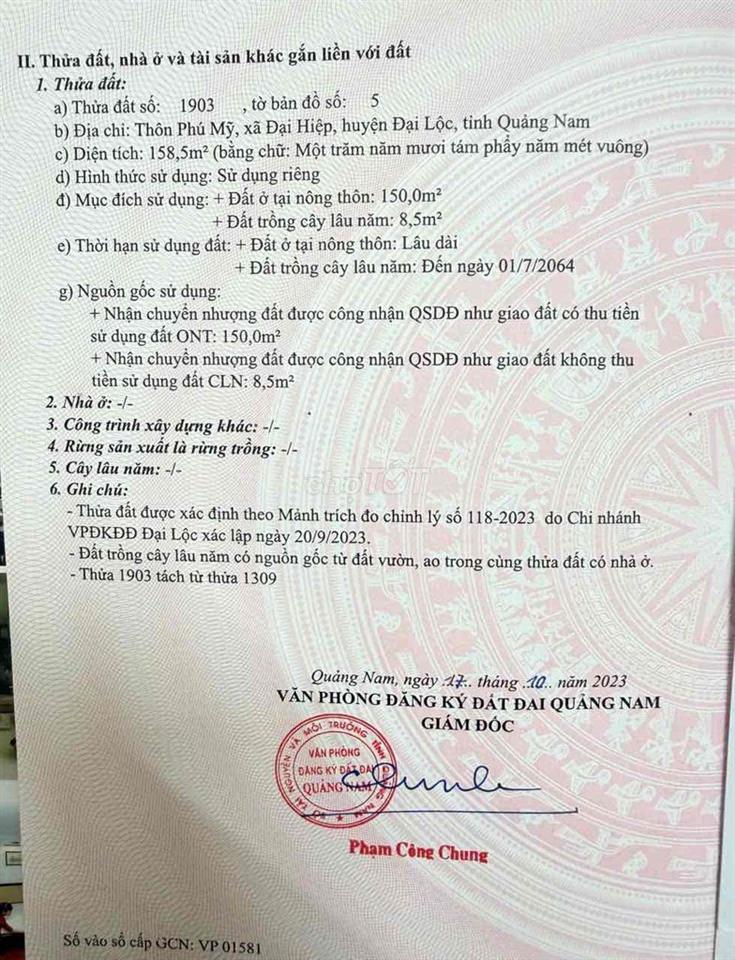 II. Thửa đất, nhà ở và tài sản khác gắn liền với đất
1. Thửa đất:
a) Thửa đất số: 1903 , tờ bản đồ số: 5
b) Địa chỉ: Thôn Phú Mỹ, xã Đại Hiệp, huyện Đại Lộc, tỉnh Quảng Nam
c) Diện tích: 158,5m² (bằng chữ: Một trăm năm mươi tám phẩy năm mét vuông)
d) Hình thức sử dụng: Sử dụng riêng
đ) Mục đích sử dụng: + Đất ở tại nông thôn: 150,0m²
+ Đất trồng cây lâu năm: 8,5m²
e) Thời hạn sử dụng đất: + Đất ở tại nông thôn: Lâu dài
+ Đất trồng cây lâu năm: Đến ngày 01/7/2064
g) Nguồn gốc sử dụng:
+ Nhận chuyển nhượng đất được công nhận QSDĐ như giao đất có thu tiền
sử dụng đất ONT: 150,0m²
+ Nhận chuyển nhượng đất được công nhận QSDĐ như giao đất không thu
tiền sử dụng đất CLN: 8,5m²
2. Nhà ở: -/-
3. Công trình xây dựng khác: -/-
4. Rừng sản xuất là rừng trồng: -/-
5. Cây lâu năm: -/-
chợTỐT
6. Ghi chú:
- Thửa đất được xác định theo Mảnh trích đo chỉnh lý số 118-2023 do Chi nhánh
VPĐKĐĐ Đại Lộc xác lập ngày 20/9/2023.
- Đất trồng cây lâu năm có nguồn gốc từ đất vườn, ao trong cùng thửa đất có nhà ở.
- Thửa 1903 tách từ thửa 1309
Quảng Nam, ngày .17.. tháng .10.. năm 2023
VĂN PHÒNG ĐĂNG KÝ ĐẤT ĐAI QUẢNG NAM
GIÁM ĐỐC
SỞ TÀI NGUYÊN VÀ MÔI TRƯỜNG TỈNH QUẢNG NAM
VĂN PHÒNG
ĐĂNG KÝ ĐẤT ĐAI
QUẢNG NAM
Phạm Công Chung
Số vào sổ cấp GCN: VP 01581